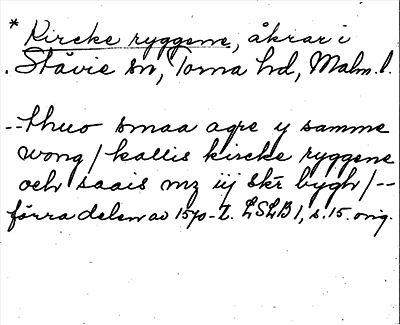 * Kircke ryggene, åkrar i
. Stävie sn, Torna hd, Malm. l.
-- thuo smaa agre y samme
wong / kallis kircke ryggene
och saais mz iij skr bygh / --
förra delen av 1570-t. LSLB 1, s. 15. orig.